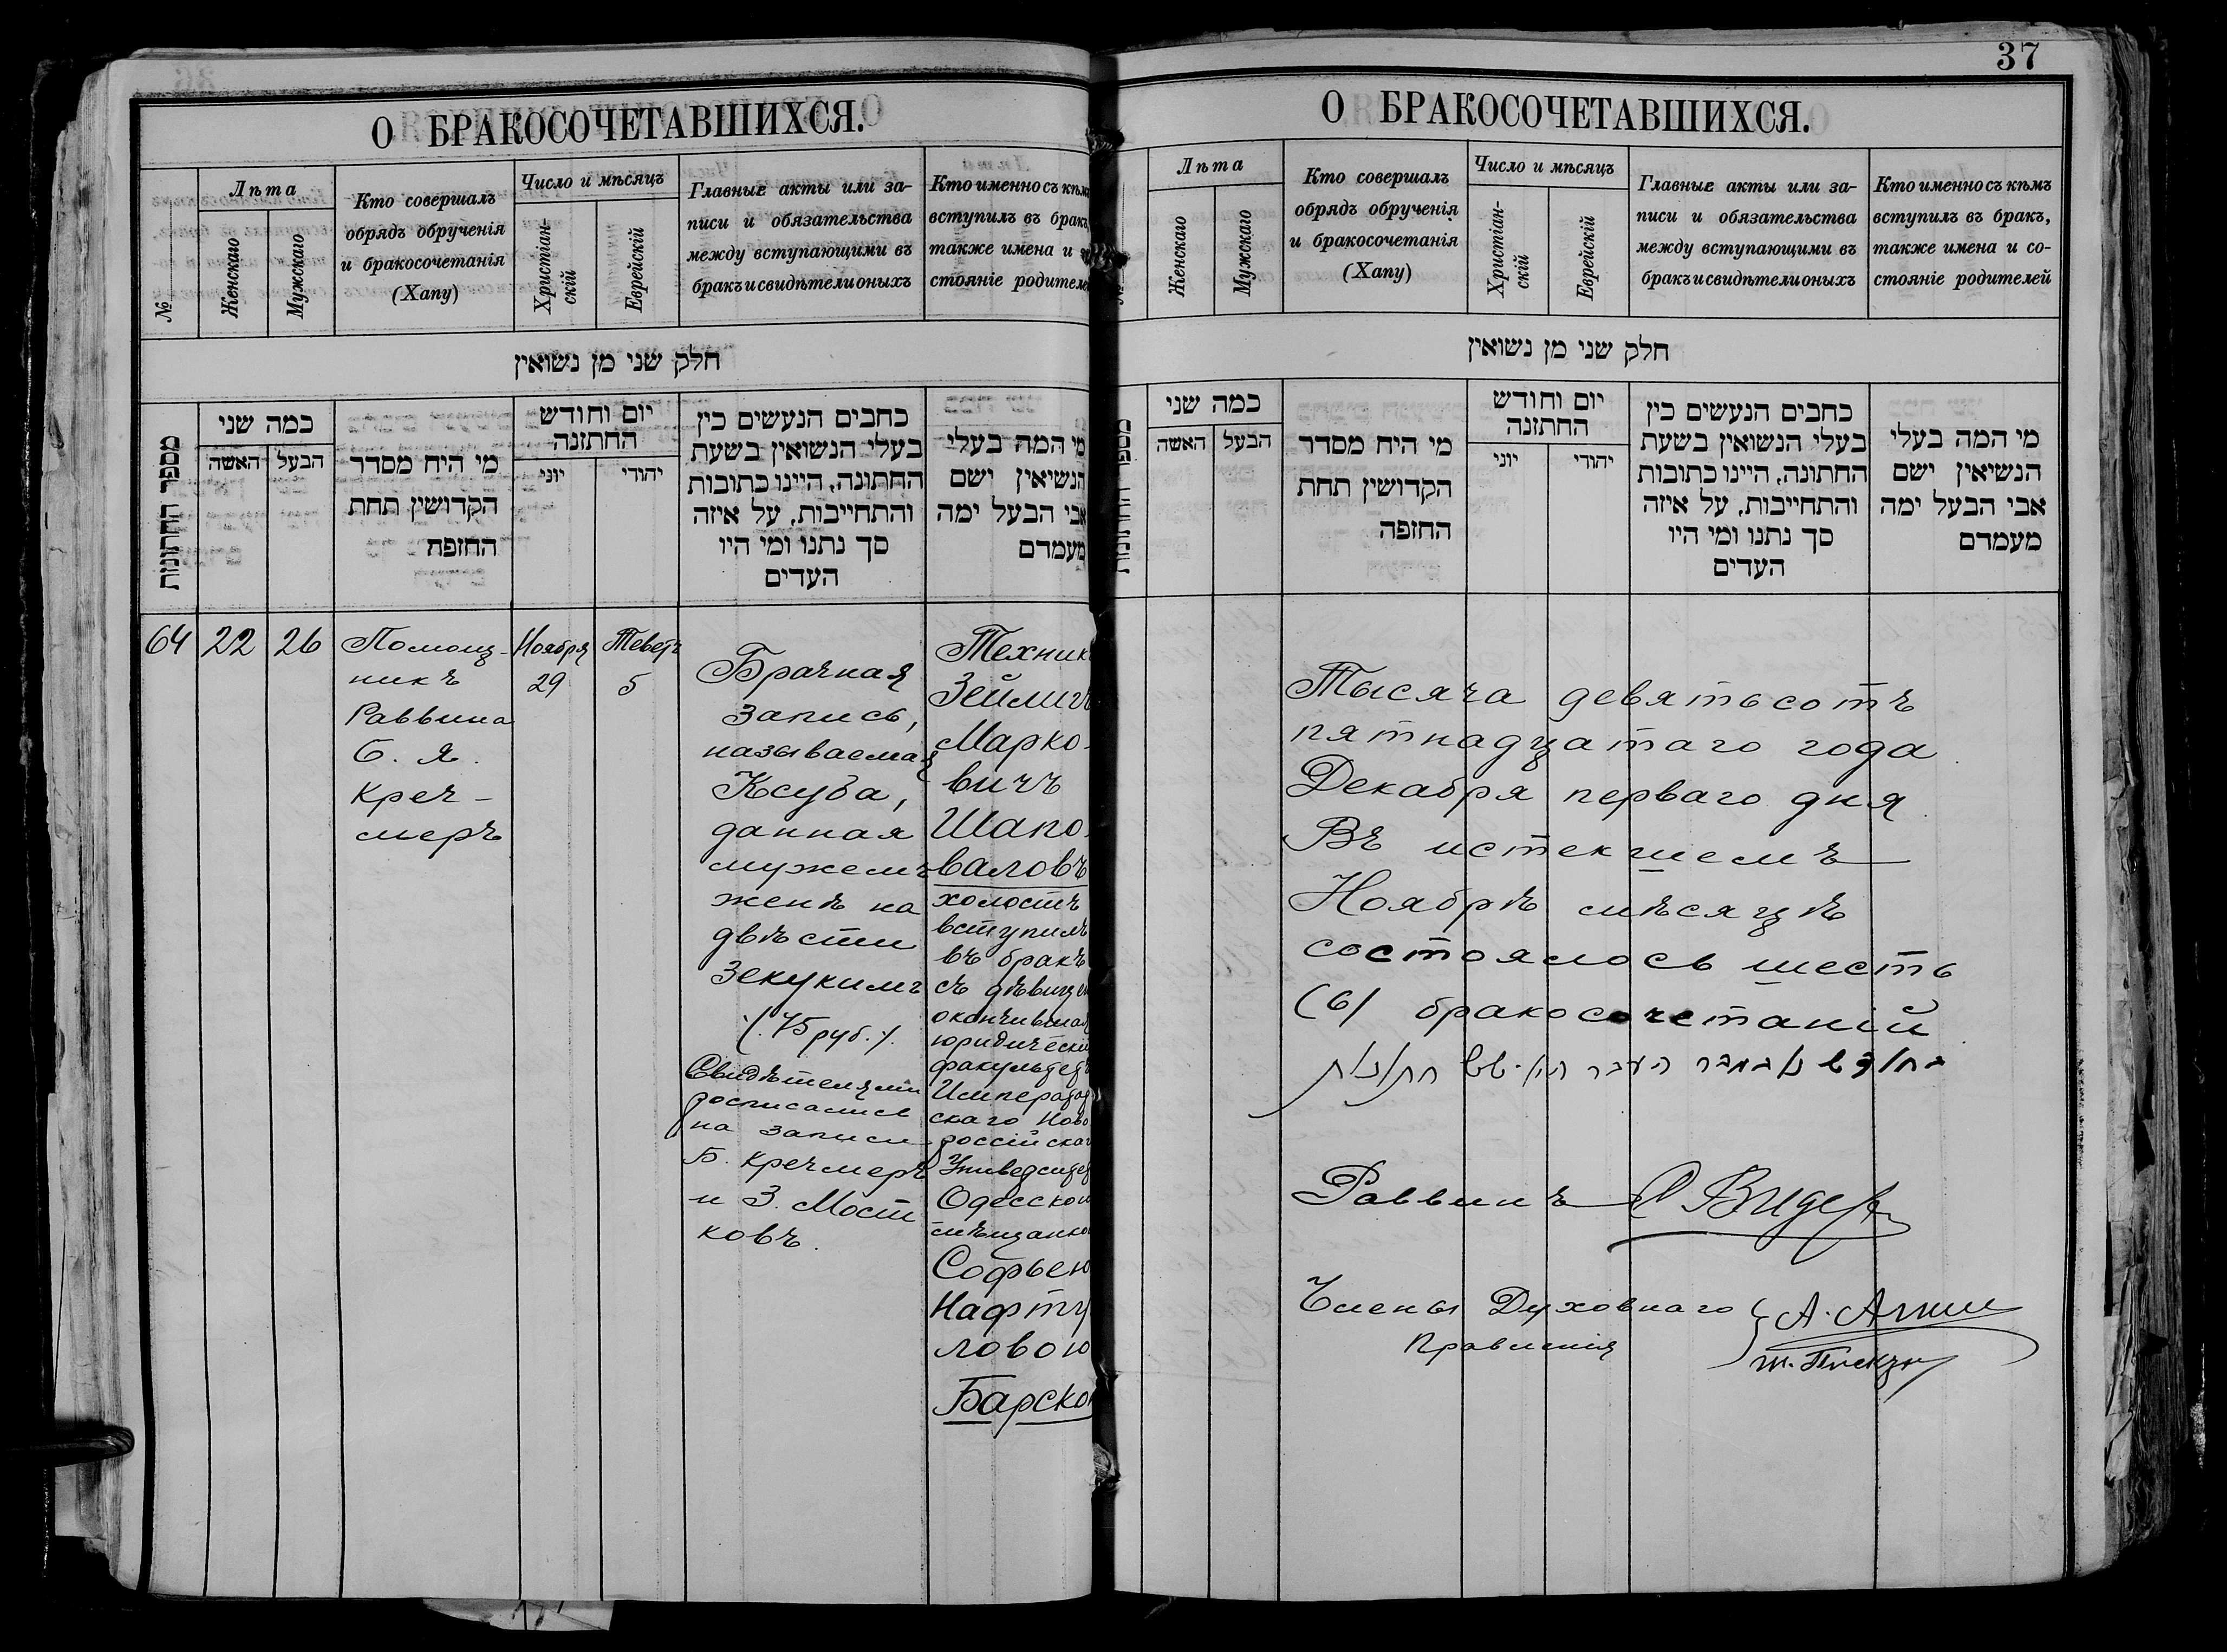 37
О БРАКОСОЧЕТАВШИХСЯ.
№
Лѣта
Женскаго
Мужскаго
Кто совершалъ
обрядъ обрученія
и бракосочетанія
(Хапу)
Число и мѣсяцъ
Христіан-
скій
Еврейскій
Главные акты или за-
писи и обязательства
между вступающими въ
бракъ и свидѣтели оныхъ
Кто именно съ кѣмъ
вступилъ въ бракъ,
также имена и
стояніе родителей
חלק שני מן נשואין
מספר החתונות
כמה שני
האשה
הבעל
מי היח מסדר
הקדושין תחת
החופה
יום וחודש
החתונה
יוני
יהודי
כחבים הנעשים כין
בעלי הנשואין בשעת
החתונה, היינו כתובות
והתחייבות, על איזה
סך נתנו ומי היו
העדים
מי המה בעלי
הנשיאין ישם
אבי הבעל ימה
מעמדם
64
22
26
Помощ-
никъ
Раввина
Б. Я.
Креч-
меръ
Ноября
29
Теветъ
5
Брачная
запись,
называемая
Ксуба,
данная
мужемъ
женѣ на
двѣсти
Зекукимъ
(75 руб.).
Свидѣтелями
росписались
на записи
Б. Кречмеръ
и З. Мост
ковъ.
Техникъ
Зейлигъ
Марко-
вичъ
Шапо-
валовъ
холостъ
вступилъ
въ бракъ
съ дѣвицей
окончившая
юридическій
факультетъ
Император
скаго Ново
россійскаго
Университет
Одесской
мѣщанкой
Софьею
Нафту
ловою
Барской
О БРАКОСОЧЕТАВШИХСЯ.
Лѣта
Женскаго
Мужскаго
Кто совершалъ
обрядъ обрученія
и бракосочетанія
(Хапу)
Число и мѣсяцъ
Христіан-
скій
Еврейскій
Главные акты или за-
писи и обязательства
между вступающими въ
бракъ и свидѣтели оныхъ
Кто именно съ кѣмъ
вступилъ въ бракъ,
также имена и со-
стояніе родителей
חלק שני מן נשואין
כמה שני
האשה
הבעל
מי היח מסדר
הקדושין תחת
החופה
יום וחודש
החתונה
יוני
יהודי
כחבים הנעשים כין
בעלי הנשואין בשעת
החתונה, היינו כתובות
והתחייבות, על איזה
סך נתנו ומי היו
העדים
מי המה בעלי
הנשיאין ישם
אבי הבעל ימה
מעמדם
Тысяча девятьсотъ
пятнадцатаго года
Декабря перваго дня
Въ истекшемъ
Ноябрѣ мѣсяцѣ
состоялось шесть
(6) бракосочетаній
בחודש נאבעבר העבר היו שש חתונות
Раввинъ
Видер
Члены Духовнаго
Правленія